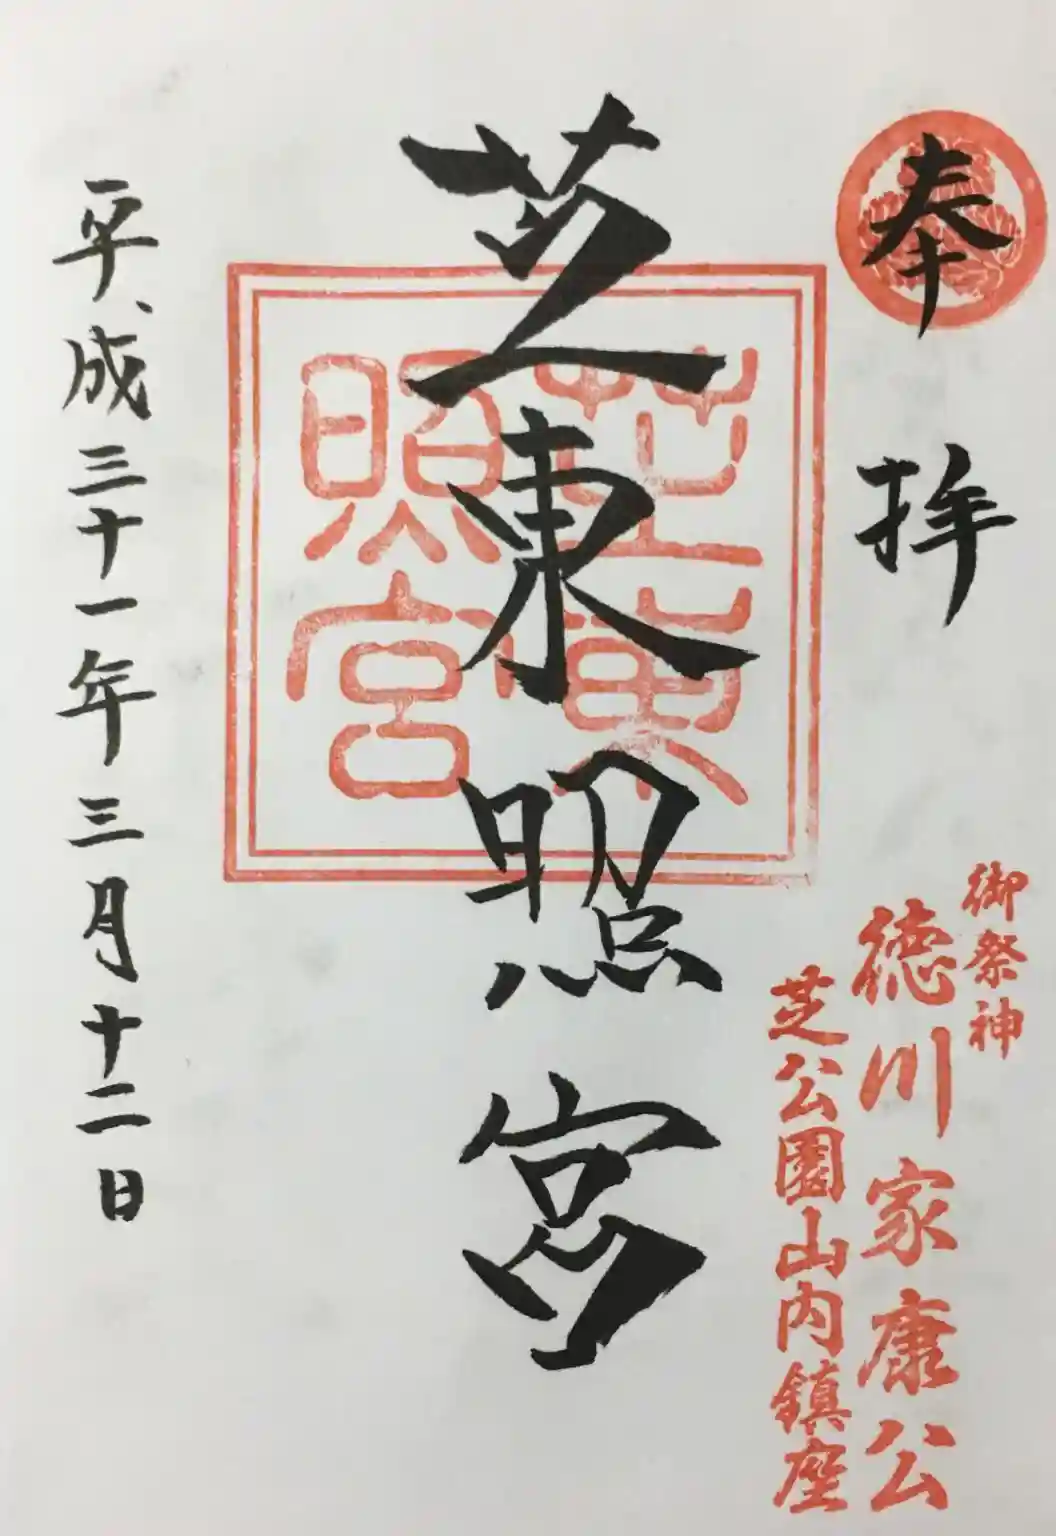 奉拝
御祭神
徳川家康公
芝公園山内鎮座
芝東照宮
芝東照宮
平成三十一年三月十二日